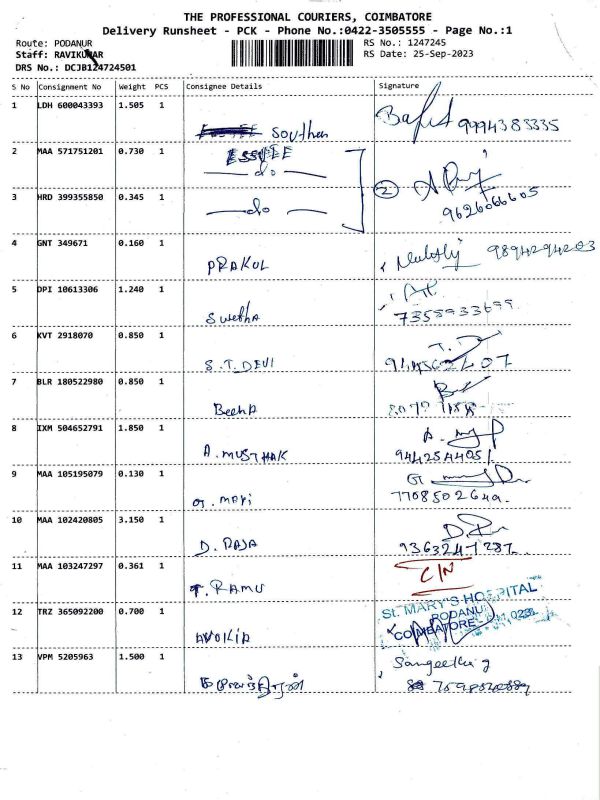 THE PROFESSIONAL COURIERS, COIMBATORE
Delivery Runsheet - PCK - Phone No.:0422-3505555 - Page No.:1
Route: PODANUR RS No.: 1247245
Staff: RAVIKUMAR RS Date: 25-Sep-2023
DRS No.: DCJB124724501
S No Consignment No Weight PCS Consignee Details Signature
1 LDH 600043393 1.505 1 Southern 9994383335
2 MAA 571751201 0.730 1 ESSVEE
do
3 HRD 399355850 0.345 1 do 2 9626066605
4 GNT 349671 0.160 1 PRAKUL 9894294203
5 DPI 10613306 1.240 1 Swetha 7358933699
6 KVT 2918070 0.850 1 S.T. DEVI
7 BLR 180522980 0.850 1 Beena
8 IXM 504652791 1.850 1 A. MUSTHAK 944254405
9 MAA 105195079 0.130 1 G. Mani
10 MAA 102420805 3.150 1 D. RAJA 9363247287
11 MAA 103247297 0.361 1 T. RAMU C/N
12 TRZ 365092200 0.700 1 St. MARY'S HOSPITAL
PODANUR
COIMBATORE
13 VPM 5205963 1.500 1 Sangeetha